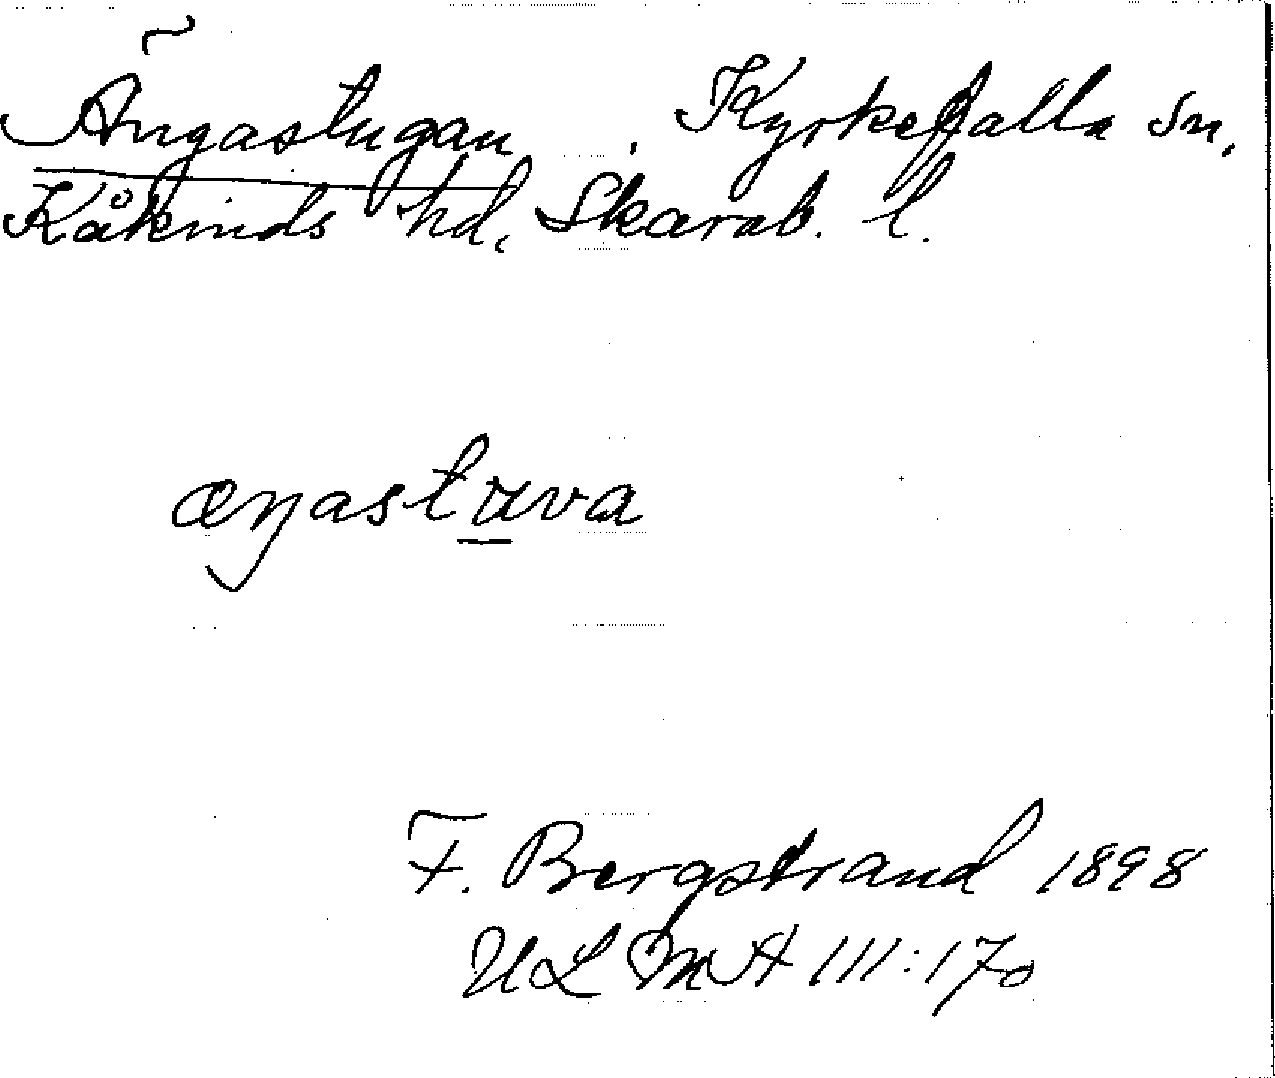 Ängastugan, Kyrkefalla sn,
Kåkinds hd, Skarab. l.
æŋastuva
F. Bergstrand 1898
ULMA 111:170